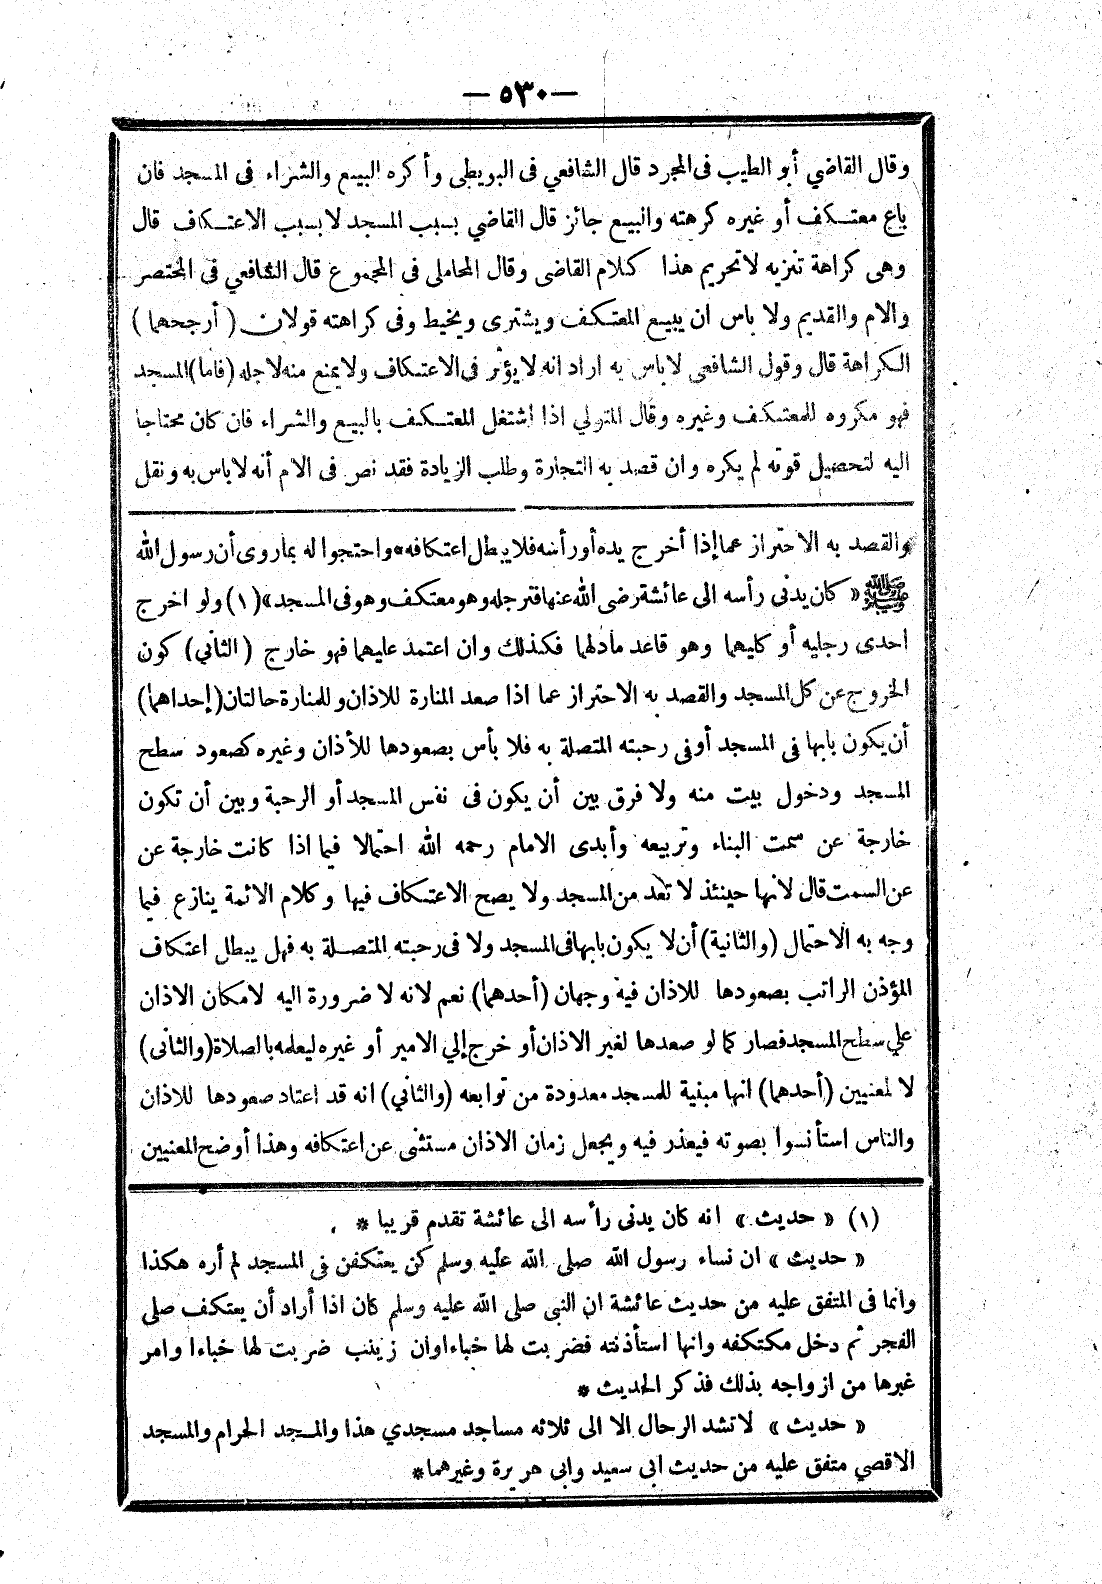 — ٥٣٠ —
وقال القاضي أبو الطيب فى المجرد قال الشافعي فى البويطى وأكره البيع والشراء فى المسجد فان
باع معتكف أو غيره كرهته والبيع جائز قال القاضي بسبب المسجد لا بسبب الاعتكاف قال
وهى كراهة تنزيه لا تحريم هذا كلام القاضى وقال المحاملى فى المجموع قال الشافعي فى المختصر
والام والقديم ولا باس ان يبيع المعتكف ويشترى ويخيط وفى كراهته قولان (أرجحهما)
الكراهة قال وقول الشافعى لا باس به اراد انه لا يؤثر فى الاعتكاف ولا يمنع منه لاجله (فاما) المسجد
فهو مكروه للمعتكف وغيره وقال المتولي اذا اشتغل المعتكف بالبيع والشراء فان كان محتاجا
اليه لتحصيل قوته لم يكره وان قصد به التجارة وطلب الزيادة فقد نص فى الام أنه لا باس به ونقل
والقصد به الاحتراز عما إذا أخرج يده أو رأسه فلا يبطل اعتكافه * واحتجوا له بما روى أن رسول الله
ﷺ « كان يدنى رأسه الى عائشة رضى الله عنها فترجله وهو معتكف وهو فى المسجد» (١) ولو اخرج
احدى رجليه أو كليهما وهو قاعد مادلهما فكذلك وان اعتمد عليهما فهو خارج (الثانى) كون
الخروج عن كل المسجد والقصد به الاحتراز عما اذا صعد المنارة للاذان وللمنارة حالتان (إحداهما)
أن يكون بابها فى المسجد أو فى رحبته المتصلة به فلا بأس بصعودها للأذان وغيره كصعود سطح
المسجد ودخول بيت منه ولا فرق بين أن يكون فى نفس المسجد أو الرحبة وبين أن تكون
خارجة عن سمت البناء وتربيعه وأبدى الامام رحمه الله احتمالا فيما اذا كانت خارجة عن
عن السمت قال لانها حينئذ لا تعد من المسجد ولا يصح الاعتكاف فيها وكلام الائمة ينازع فيما
وجه به الاحتمال (والثانية) أن لا يكون بابها فى المسجد ولا فى رحبته المتصلة به فهل يبطل اعتكاف
المؤذن الراتب بصعودها للاذان فيه وجهان (أحدهما) نعم لانه لا ضرورة اليه لامكان الاذان
علي سطح المسجد فصار كما لو صعدها لغير الاذان أو خرج إلي الامير أو غيره ليعلمه بالصلاة (والثانى)
لا لمعنيين (أحدهما) انها مبنية للمسجد معدودة من توابعه (والثاني) انه قد اعتاد صعودها للاذان
والناس استأنسوا بصوته فيعذر فيه ويجعل زمان الاذان مستثنى عن اعتكافه وهذا أوضح المعنيين
(١) « حديث » انه كان يدنى رأسه الى عائشة تقدم قريبا *
« حديث » ان نساء رسول الله صلى الله عليه وسلم كن يعتكفن فى المسجد لم أره هكذا
وانما فى المتفق عليه من حديث عائشة ان النبى صلى الله عليه وسلم كان اذا أراد أن يعتكف صلى
الفجر ثم دخل مكتكفه وانها استأذنته فضربت لها خباء اوان زينب ضربت لها خباءا وامر
غيرها من ازواجه بذلك فذكر الحديث *
« حديث » لا تشد الرحال الا الى ثلاثه مساجد مسجدي هذا والمسجد الحرام والمسجد
الاقصي متفق عليه من حديث ابى سعيد وابى هريرة وغيرهما *